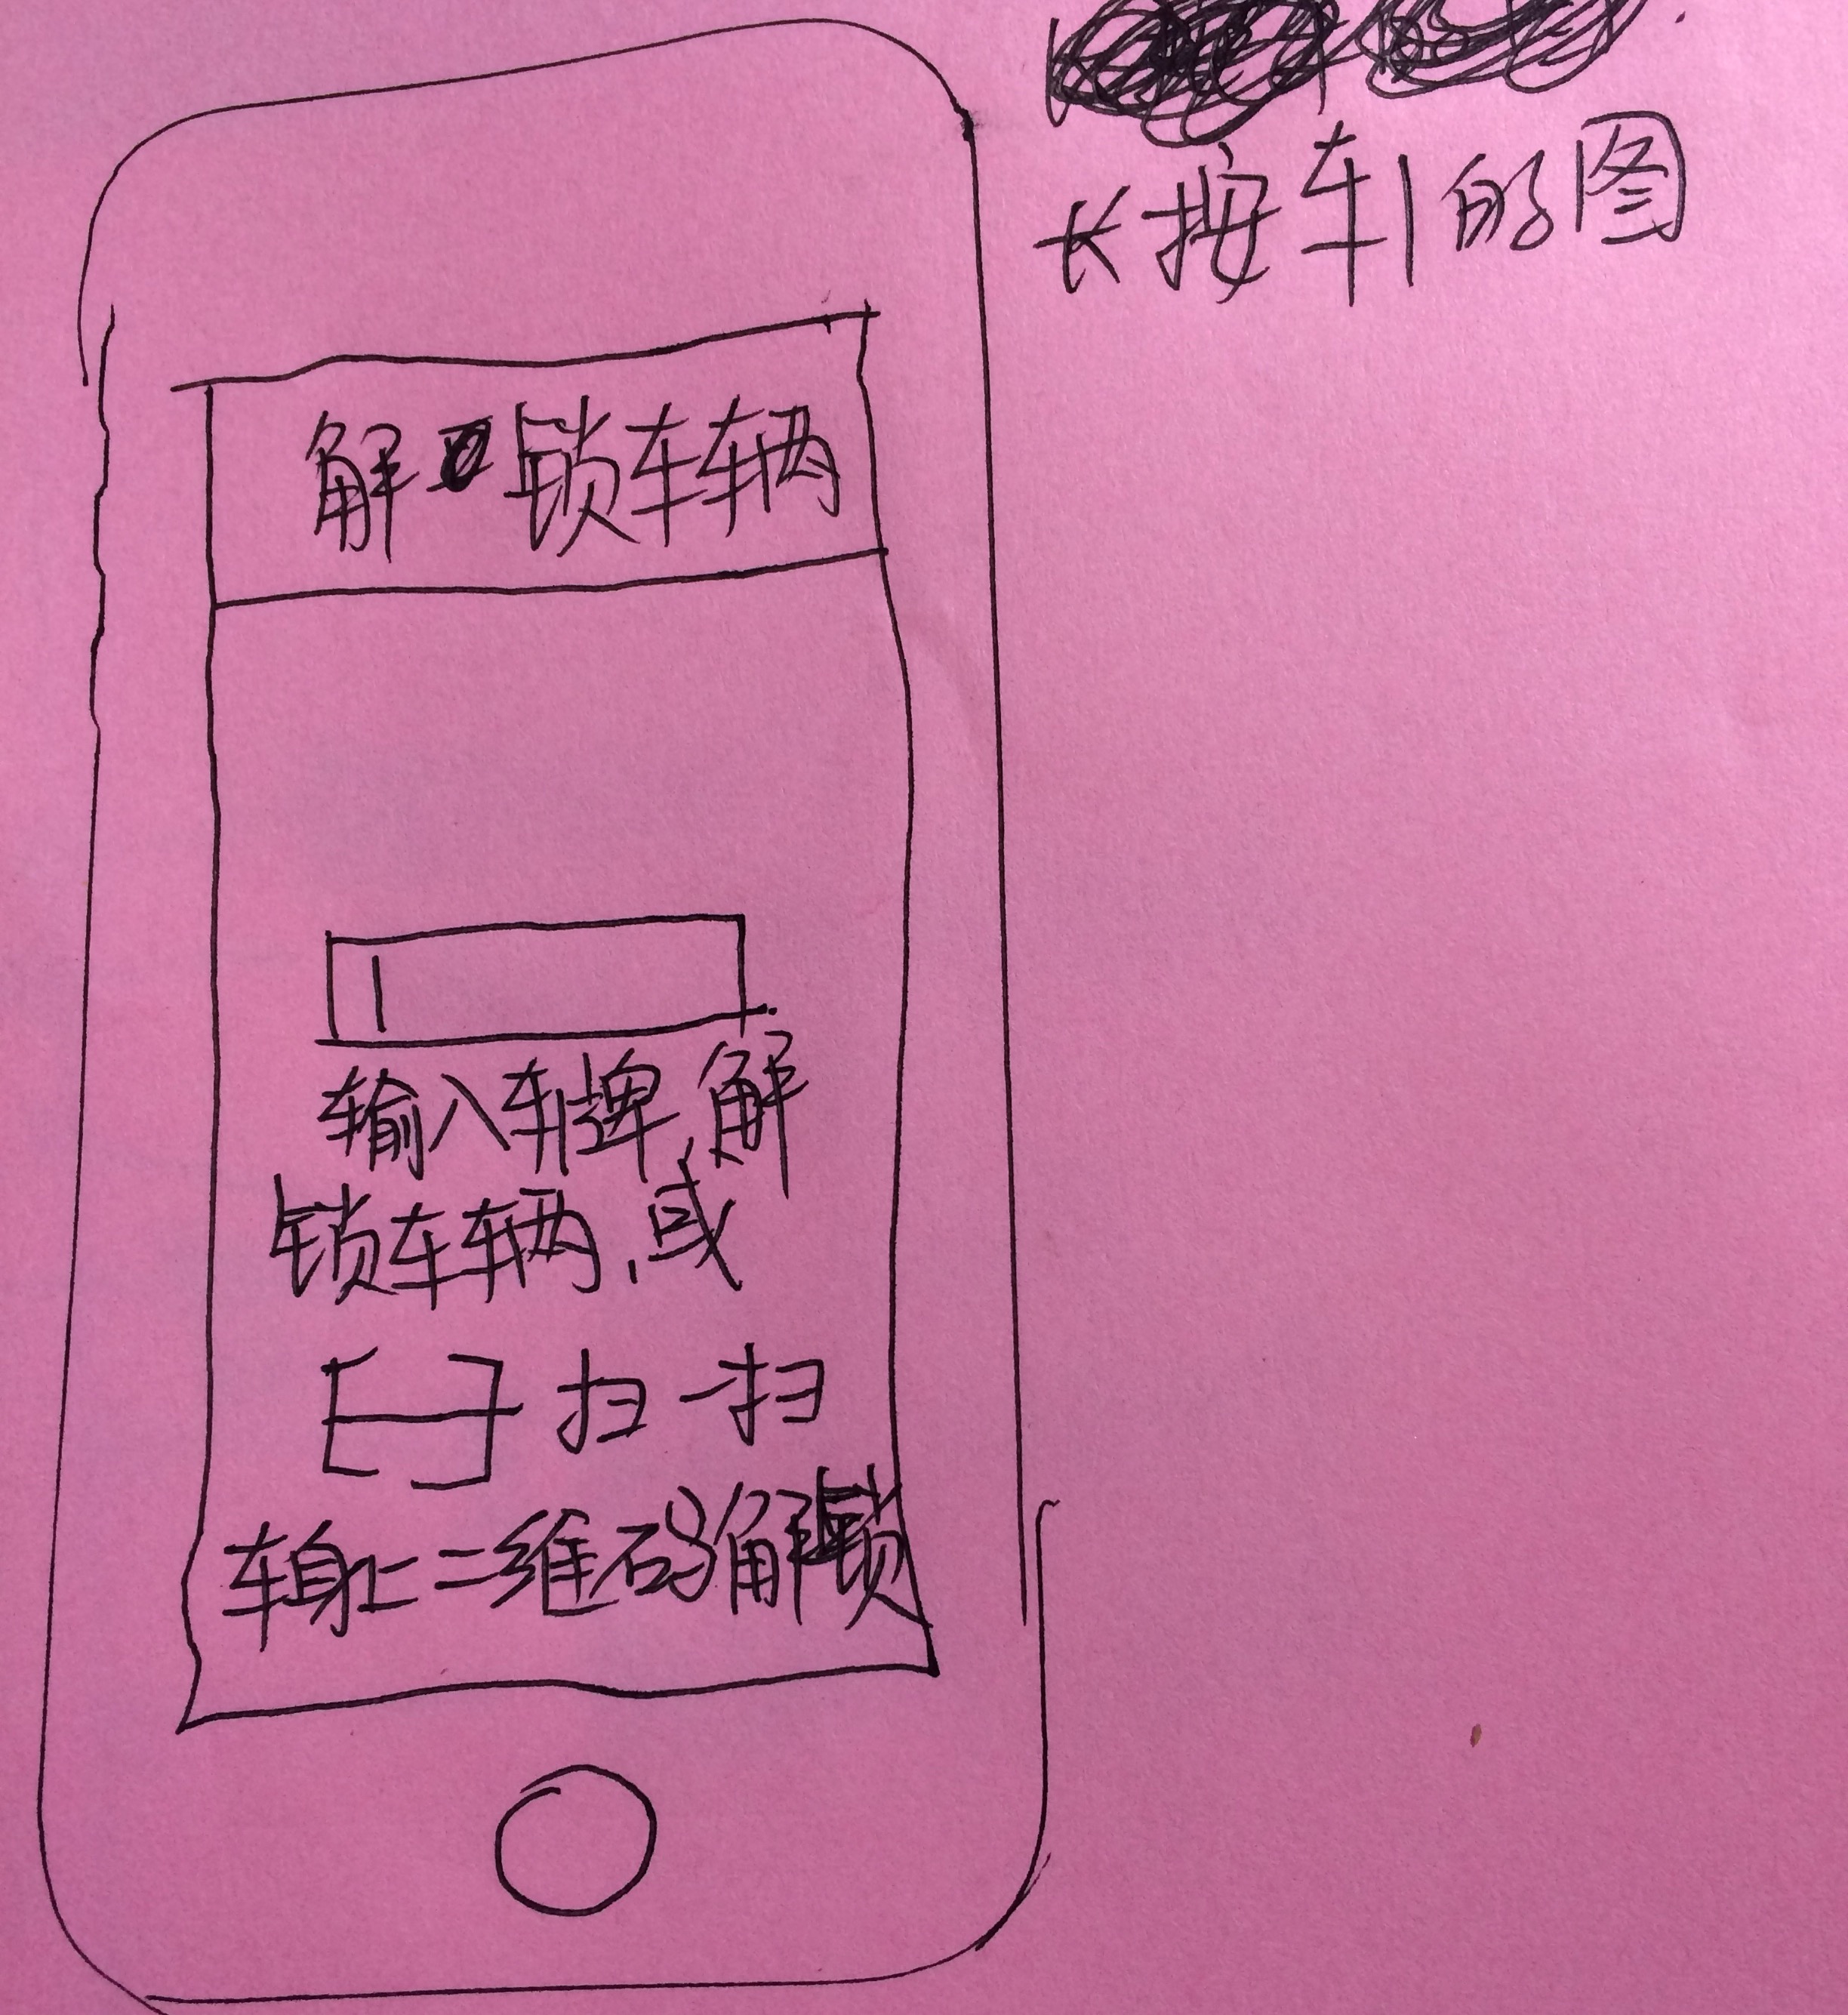 长按车1的图
解锁车辆
输入车牌,解
锁车辆,或
扫一扫
车身上二维码解锁